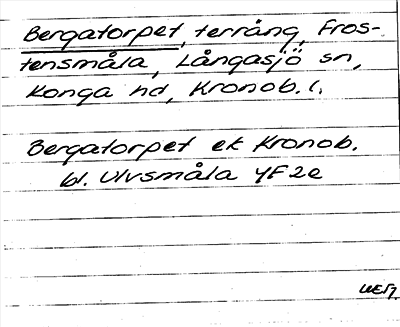 Bergatorpet, terräng, Fros-
tensmåla, Långasjö sn,
Konga hd, Kronob. l.
Bergatorpet ek Kronob.
bl. Ulvsmåla 4F2e